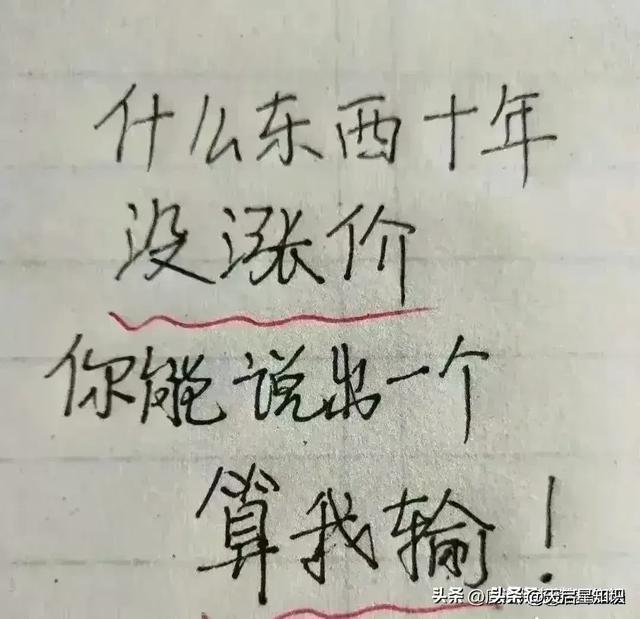 什么东西十年
没涨价
你能说出一个
算我输!